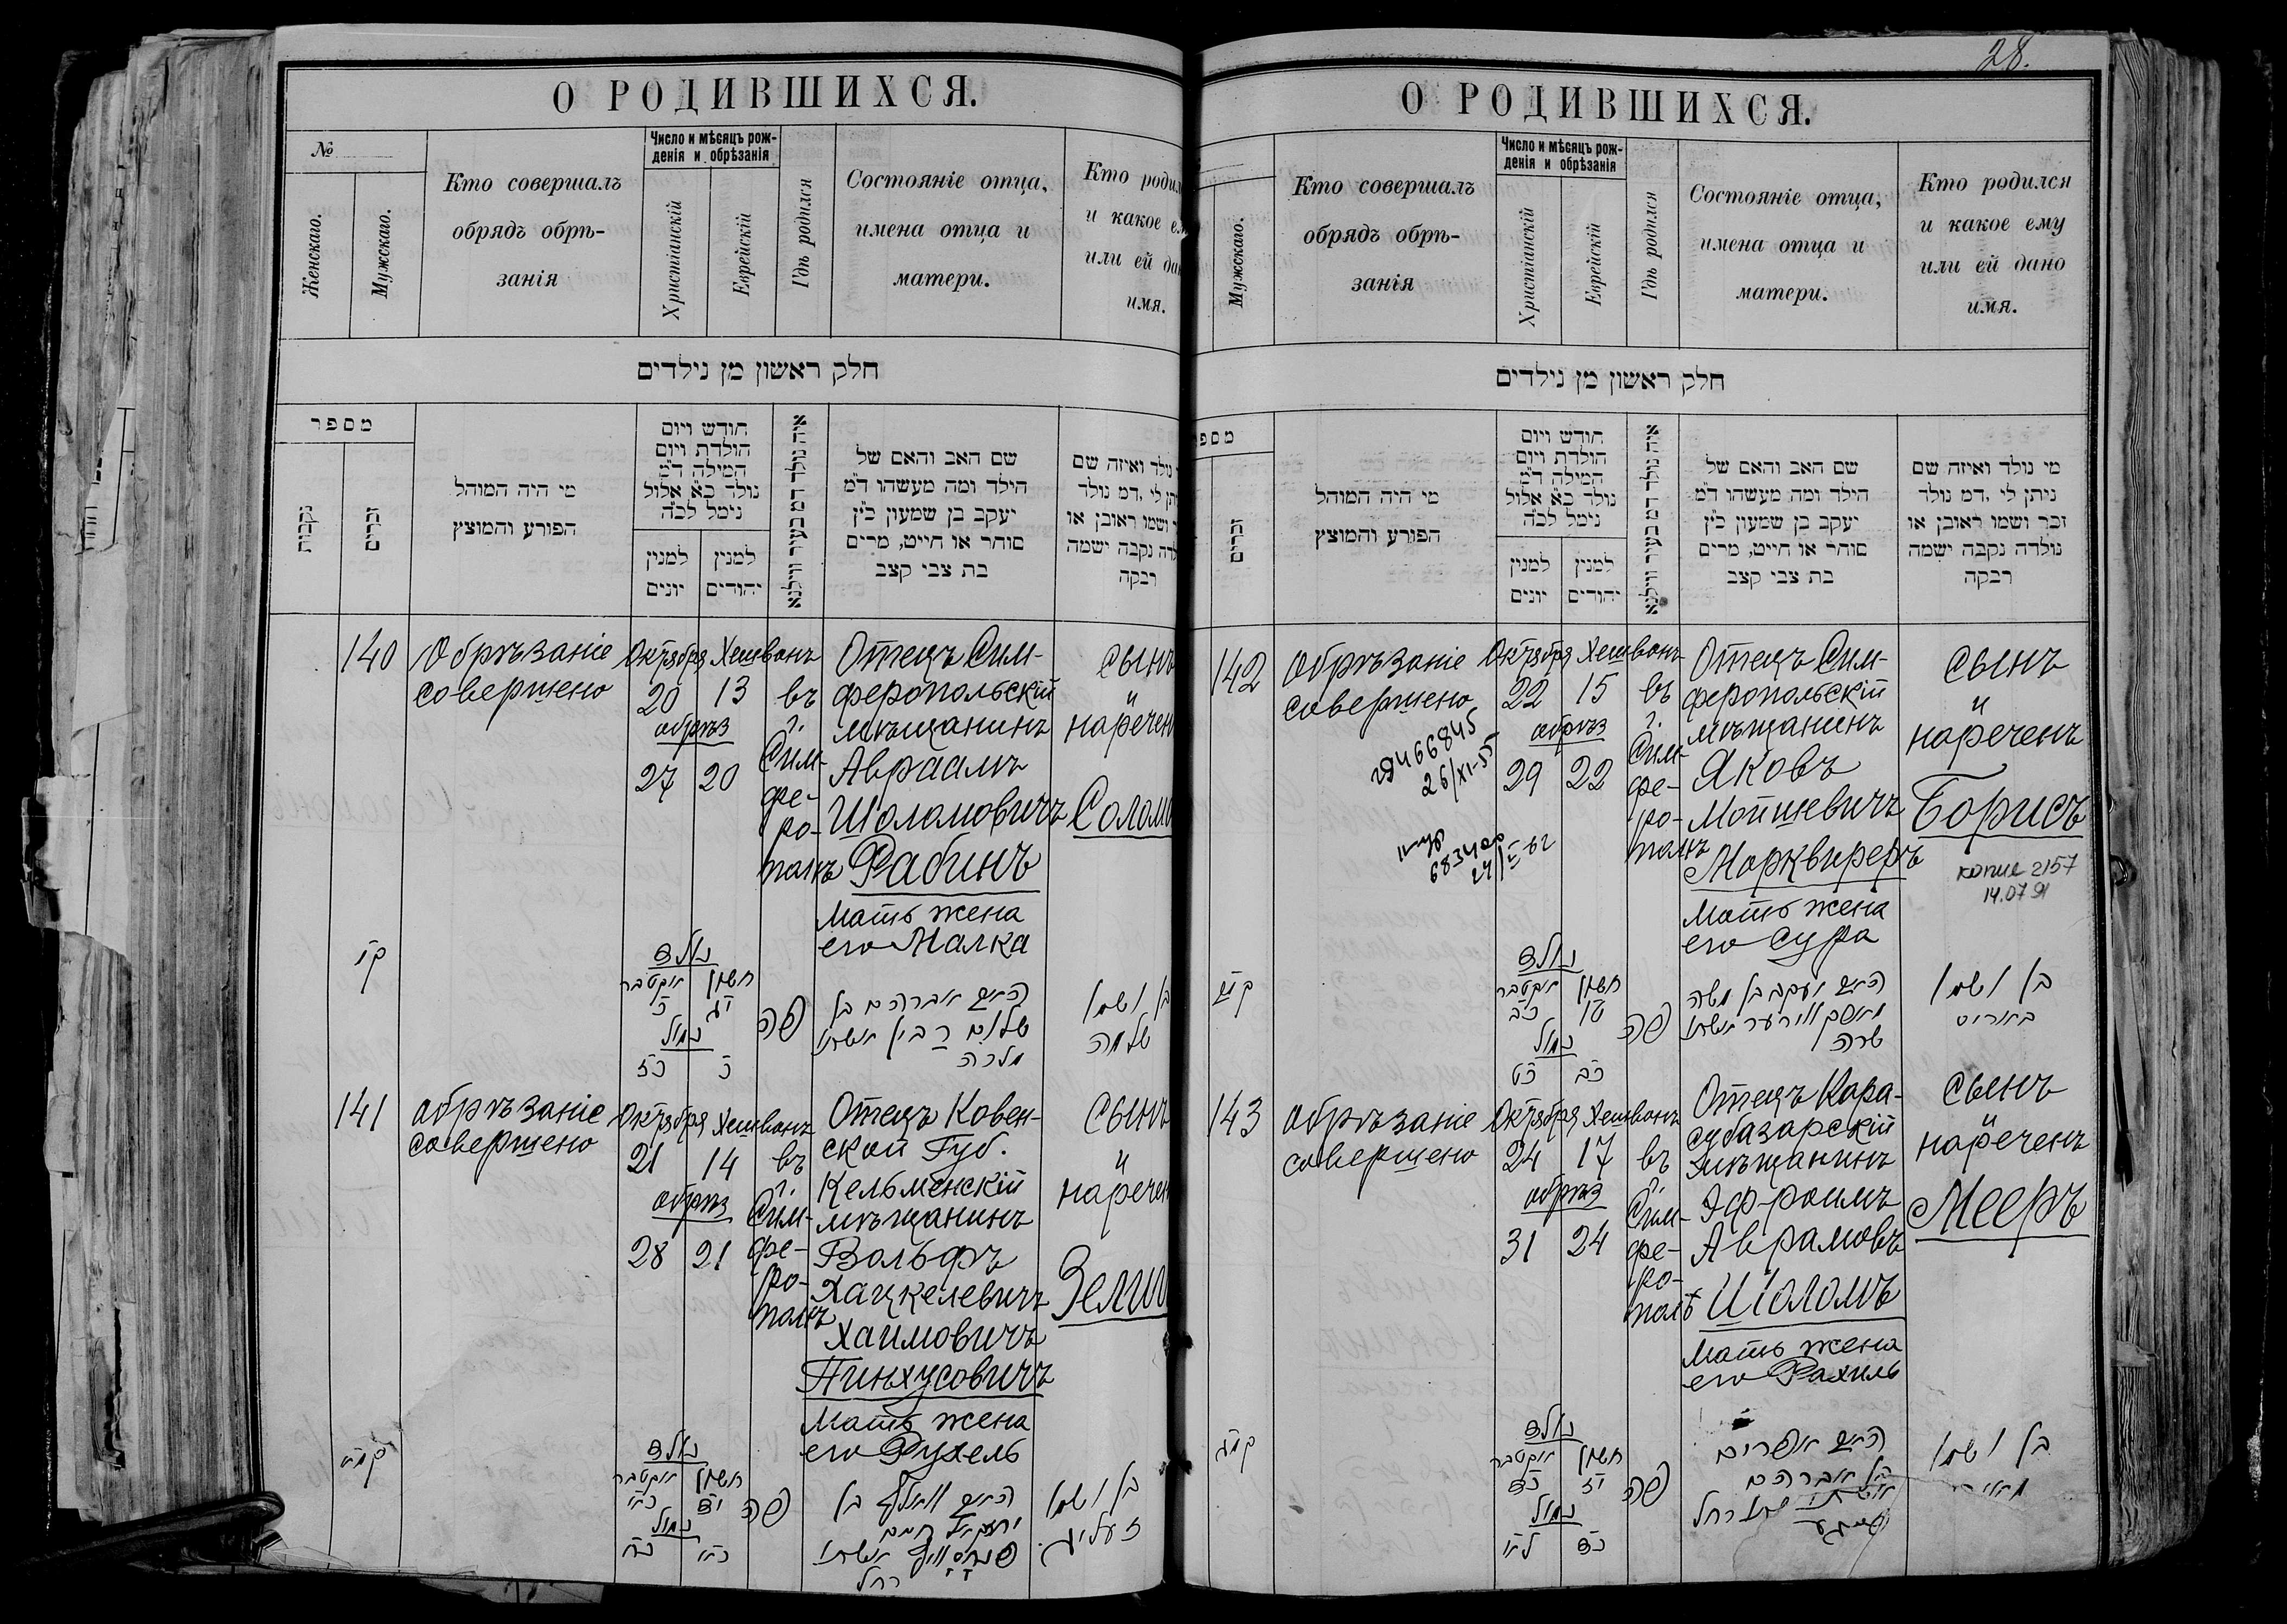 О РОДИВШИХСЯ.
№
Женскаго.
Мужскаго.
Кто совершалъ
обрядъ обрѣ-
занія
Число и мѣсяцъ рож-
денія и обрѣзанія
Христіанскій
Еврейскій
Гдѣ родился
Состояніе отца,
имена отца и
матери.
Кто
и какое
или ей
имя.
חלק ראשון מן נילדים
מספר
נקבות
זכרים
מי היה המוהל
הפורע והמוצץ
חודש ויום
הולדת ויום
המילה ד"מ
נולד כ"א אלול
נימל לכ"ה
למנין
יונים
למנין
יהודים
איה נולד דמ בעיר ווילנא
שם האב והאם של
הילד ומה מעשהו ד"מ
יעקב בן שמעון כ"ץ
סוחר או חייט, מרים
בת צבי קצב
נולד ואיזה שם
לי ,דמ נולד
ושמו ראובן או
נקבה ישמה
רבקה
140
Обрѣзаніе
совершено
Октября Хешванъ
20 13
обрѣз
27 20
въ
г.
Сим-
фе-
ро-
полѣ
Отецъ Сим-
феропольскій
мѣщанинъ
Авраамъ
Шоломовичъ
Рабинъ
Мать жена
его Малка
сынъ
и
наречен
נולד
אוקטבר חשון
כ יג
נמול
כז כ
פה
אברהם בן
שלום רבין אשתו
מלכה
בן ושמו
שלמה
141
обрѣзаніе
совершено
Октября Хешванъ
21 14
обрѣз
28 21
въ
г.
Сим-
фе-
ро-
полѣ
Отецъ Ковен-
ской Губ.
Кельменскій
мѣщанинъ
Вольфъ
Хацкелевичъ
Хаимовичъ
Пинхусовичъ
Мать жена
его Рухель
сынъ
и
наречен
נולד
אוקטבר חשון
נמול
פה
רחל
בן ושמו
זעליג
28.
О РОДИВШИХСЯ.
Мужскаго.
Кто совершалъ
обрядъ обрѣ-
занія
Число и мѣсяцъ рож-
денія и обрѣзанія
Христіанскій
Еврейскій
Гдѣ родился
Состояніе отца,
имена отца и
матери.
Кто родился
и какое ему
или ей дано
имя.
חלק ראשון מן נילדים
זכרים
מי היה המוהל
הפורע והמוצץ
חודש ויום
הולדת ויום
המילה ד"מ
נולד כ"א אלול
נימל לכ"ה
למנין
יונים
למנין
יהודים
איה נולד דמ בעיר ווילנא
שם האב והאם של
הילד ומה מעשהו ד"מ
יעקב בן שמעון כ"ץ
סוחר או חייט, מרים
בת צבי קצב
מי נולד ואיזה שם
ניתן לי ,דמ נולד
זכר ושמו ראובן או
נולדה נקבה ישמה
רבקה
142
обрѣзаніе
совершено
26/XI-55
Октября Хешванъ
22 15
обрѣз
29 22
въ
г.
Сим-
фе-
ро-
полѣ
Отецъ Сим-
феропольскій
мѣщанинъ
Яковъ
Мошкевичъ
Мать жена
его Сура
сынъ
и
нареченъ
Борисъ
копия 2157
14.07 91
נולד
אוקטבר חשון
כב טו
נמול
כט כב
פה
יעקב בן משה
שרה
בן ושמו
באריס
143
обрѣзаніе
совершено
Октября Хешванъ
24 17
обрѣз
31 24
въ
г.
Сим-
фе-
ро-
полѣ
Отецъ Кара-
субазарскій
мѣщанинъ
Эфроимъ
Аврамовъ
Шоломъ
Мать жена
его Рахиль
сынъ
и
нареченъ
Мееръ
קמג
נולד
אוקטבר חשון
כד יז
נמול
לא כד
פה
אפרים
בן אברהם
רחל
בן ושמו
מאיר